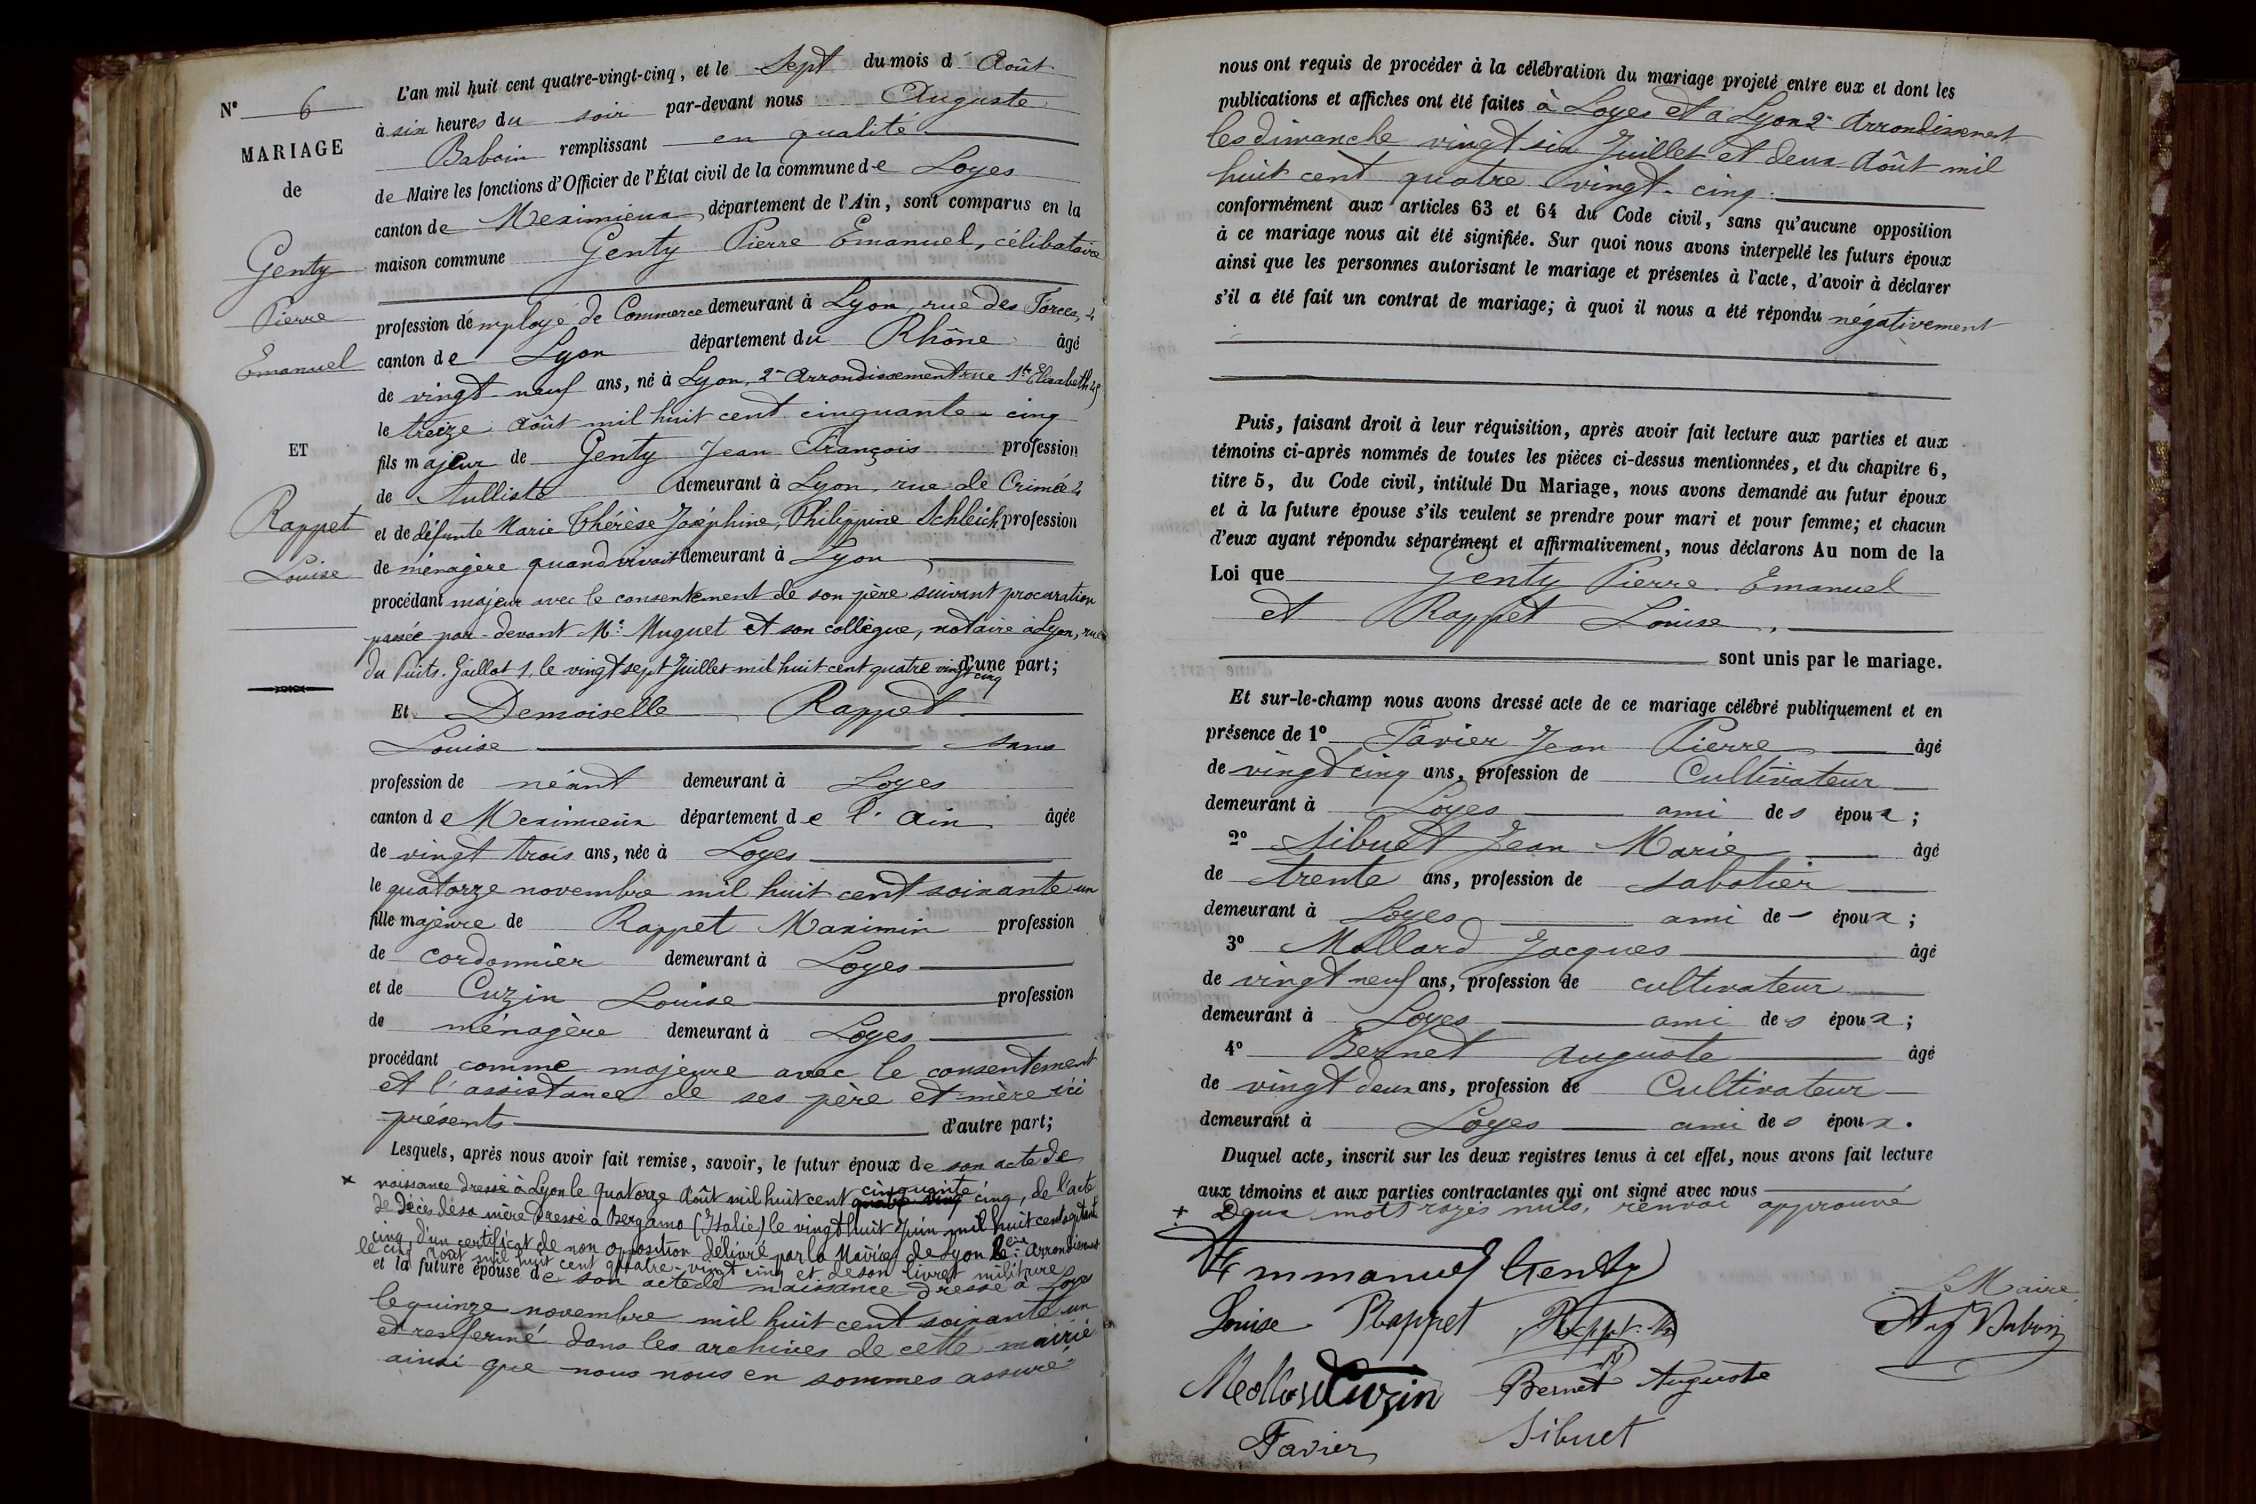 N° 6
MARIAGE
de
Genty
Pierre
Emanuel
ET
Rappet
Louise
L'an mil huit cent quatre-vingt-cinq, et le sept du mois d'Août
à six heures du soir par-devant nous Auguste
Baboin remplissant en qualité
de Maire les fonctions d'Officier de l'État civil de la commune de Loyes
canton de Meximieux département de l'Ain, sont comparus en la
maison commune Genty Pierre Emanuel, célibataire
profession d'employé de Commerce demeurant à Lyon, rue des Forces, 4
canton de Lyon département du Rhône âgé
de vingt-neuf ans, né à Lyon, 2e Arrondissement rue Ste Elisabeth 45
le treize Août mil huit cent cinquante-cinq
fils majeur de Genty Jean François profession
de Tulliste demeurant à Lyon, rue de Crimée 4
et de défunte Marie Thérèse Joséphine, Philippine Schleich, profession
de ménagère quand vivait demeurant à Lyon
procédant majeur avec le consentement de son père suivant procuration
passée par-devant Me Muguet et son collègue, notaire à Lyon, rue
du Puits-Gaillot 1, le vingt sept Juillet mil huit cent quatre vingt cinq d'une part;
Et Demoiselle Rappet
Louise sans
profession de néant demeurant à Loyes
canton de Meximieux département de l'Ain âgée
de vingt trois ans, née à Loyes
le quatorze novembre mil huit cent soixante un
fille majeure de Rappet Maximin profession
de cordonnier demeurant à Loyes
et de Cuzin Louise profession
de ménagère demeurant à Loyes
procédant comme majeure avec le consentement
et l'assistance de ses père et mère ici
présents d'autre part;
Lesquels, après nous avoir fait remise, savoir, le futur époux de son acte de
x naissance dressé à Lyon le quatorze Août mil huit cent quatre vingt cinquante cinq, de l'acte
de décès de sa mère dressé à Bergamo (Italie) le vingt huit Juin mil huit cent septante
cinq, d'un certificat de non opposition délivré par la Mairie de Lyon 2ème Arrondissement
le cinq Août mil huit cent quatre-vingt cinq et de son livret militaire
et la future épouse de son acte de naissance dressé à Loyes
le quinze novembre mil huit cent soixante un
et renfermé dans les archives de cette mairie
ainsi que nous nous en sommes assuré
nous ont requis de procéder à la célébration du mariage projeté entre eux et dont les
publications et affiches ont été faites à Loyes et à Lyon 2e Arrondissement
les dimanche vingt six Juillet et deux Août mil
huit cent quatre vingt-cinq
conformément aux articles 63 et 64 du Code civil, sans qu'aucune opposition
à ce mariage nous ait été signifiée. Sur quoi nous avons interpellé les futurs époux
ainsi que les personnes autorisant le mariage et présentes à l'acte, d'avoir à déclarer
s'il a été fait un contrat de mariage; à quoi il nous a été répondu négativement
Puis, faisant droit à leur réquisition, après avoir fait lecture aux parties et aux
témoins ci-après nommés de toutes les pièces ci-dessus mentionnées, et du chapitre 6,
titre 5, du Code civil, intitulé Du Mariage, nous avons demandé au futur époux
et à la future épouse s'ils veulent se prendre pour mari et pour femme; et chacun
d'eux ayant répondu séparément et affirmativement, nous déclarons Au nom de la
Loi que Genty Pierre Emanuel
et Rappet Louise
sont unis par le mariage.
Et sur-le-champ nous avons dressé acte de ce mariage célébré publiquement et en
présence de 1° Favier Jean Pierre âgé
de vingt cinq ans, profession de Cultivateur
demeurant à Loyes ami des époux;
2° Sibuet Jean Marie âgé
de trente ans, profession de sabotier
demeurant à Loyes ami des époux;
3° Mollard Jacques âgé
de vingt neuf ans, profession de cultivateur
demeurant à Loyes ami des époux;
4° Bernet Auguste âgé
de vingt deux ans, profession de Cultivateur
demeurant à Loyes ami des époux.
Duquel acte, inscrit sur les deux registres tenus à cet effet, nous avons fait lecture
aux témoins et aux parties contractantes qui ont signé avec nous
x Deux mots rayés nuls, renvoi approuvé
Emmanuel Genty
Le Maire
Louise Rappet Rappet
Aug Baboin
Mollard Cuzin Bernet Auguste
Favier Sibuet